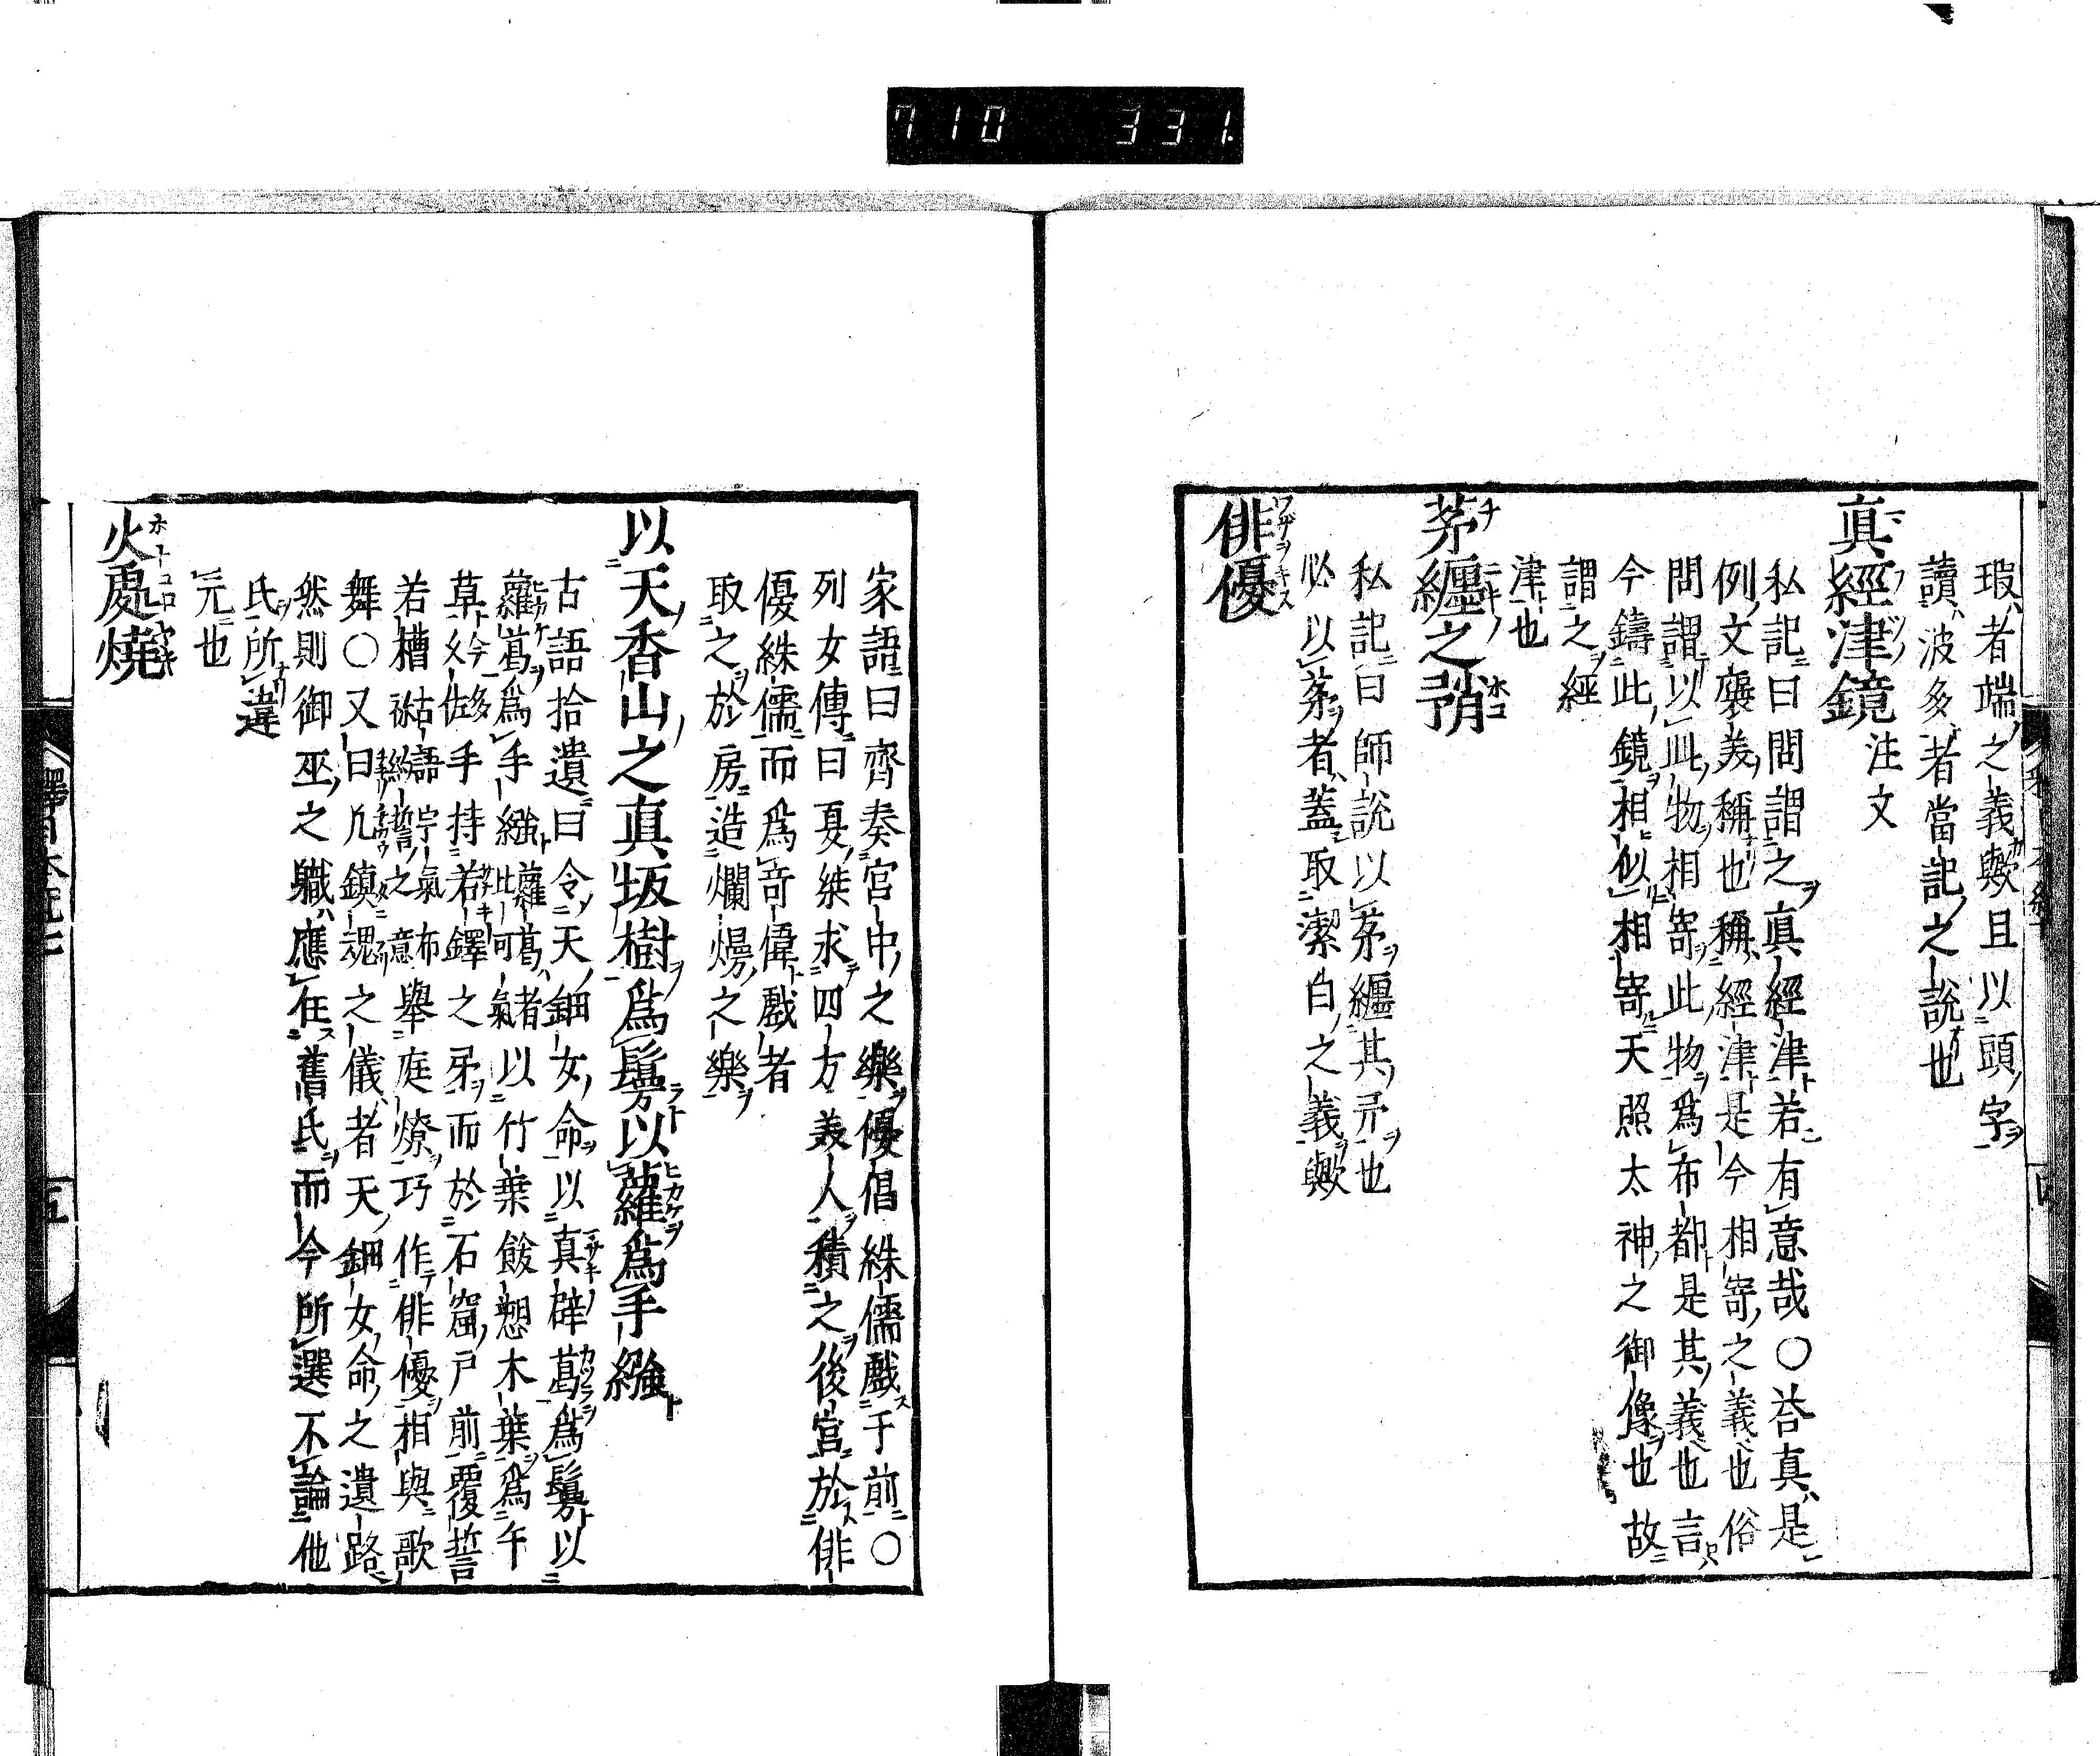 710 331
瑕者端之義歟且以頭字
讀波多者當記之說也
真經津鏡 注文
私記曰問謂之真經津若有意哉○荅真是
例文襃美稱也稱經津是今相寄之義也俗
問謂以此物相寄此物爲布都是其義也言
今鑄此鏡相似相寄天照太神之御像也故
謂之經
津也
茅纏之矟
私記曰師說以茅纏其矛也
必以茅者蓋取潔白之義歟
俳優
家語曰齊奏宮中之樂優倡絑儒戲于前○
列女傳曰夏桀求四方美人積之後宮於俳
優絑儒而爲竒偉戲者
取之於房造爛熳之樂
以天香山之真坂樹爲鬘以蘿爲手繦
古語拾遺曰令天鈿女命以真辟葛爲鬘以
蘿葛爲手繦蘿葛者比可氣以竹葉飫憩木葉爲午
草今多久佐手持若鐸之矛而於石窟戶前覆誓
若槽古語宇氣布祢約誓之意舉庭燎巧作俳優相與歌
舞○又曰凢鎮魂之儀者天鈿女命之遺路
然則御巫之職應任舊氏而今所選不論他
氏所違
元也
火處燒
五